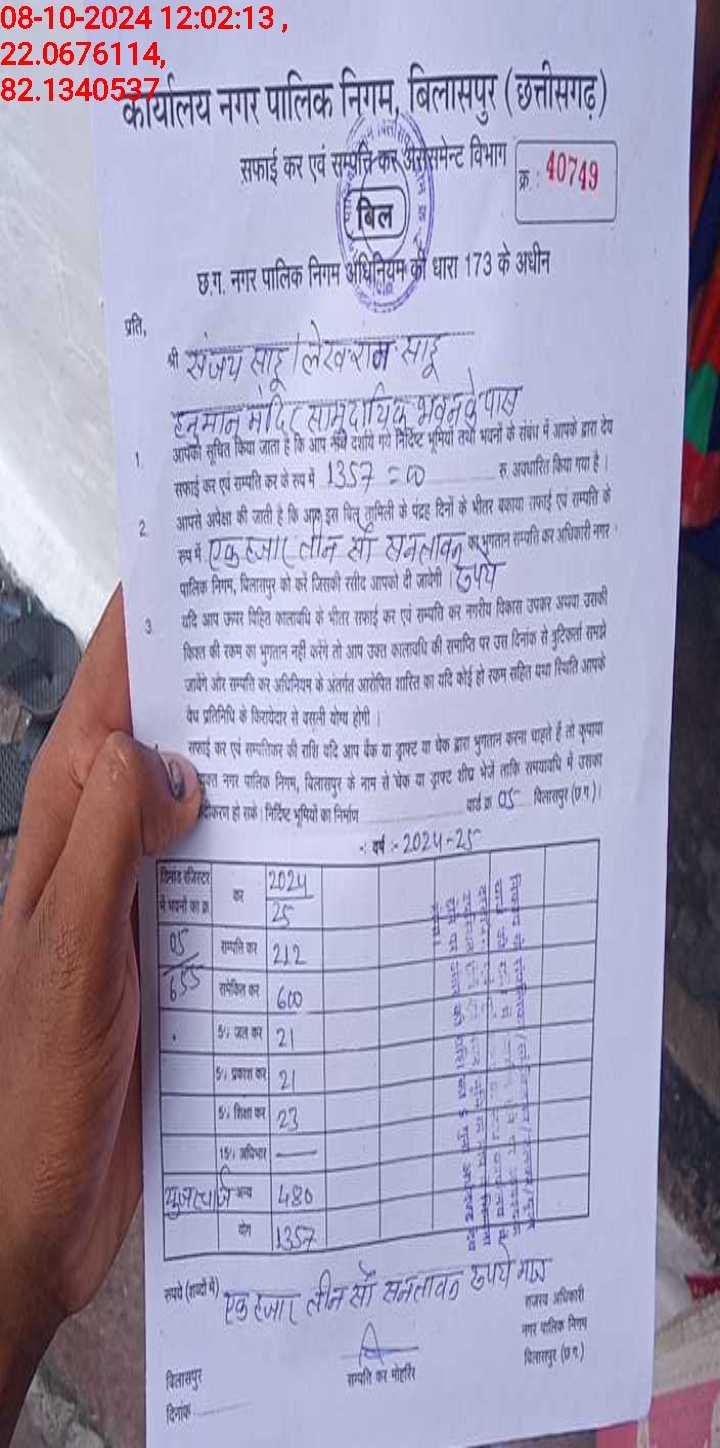 08-10-2024 12:02:13 ,
22.0676114,
82.1340537
कार्यालय नगर पालिक निगम, बिलासपुर (छत्तीसगढ़)
सफाई कर एवं सम्पत्ति कर असेसमेन्ट विभाग
क्र. : 40749
बिल
छ.ग. नगर पालिक निगम अधिनियम की धारा 173 के अधीन
प्रति,
श्री संजय साहू / लेखराम साहू
हनुमान मंदिर सामुदायिक भवन के पास
1. आपको सूचित किया जाता है कि आप नीचे दर्शाये गये निर्दिष्ट भूमियों तथा भवनों के संबंध में आपके द्वारा देय
सफाई कर एवं सम्पति कर के रुप में 1357 = 00 रु. अवधारित किया गया है |
2 आपसे अपेक्षा की जाती है कि आप इस बिल तामिली के पंद्रह दिनों के भीतर बकाया सफाई एवं सम्पति के
रुप में एक हजार तीन सौ सनतावन का भुगतान सम्पति कर अधिकारी नगर
पालिक निगम, बिलासपुर को करें जिसकी रसीद आपको दी जायेगी | रुपये
3 यदि आप ऊपर विहित कालावधि के भीतर सफाई कर एवं सम्पति कर नगरीय विकास उपकर अथवा उसकी
किश्त की रकम का भुगतान नही करेंगे तो आप उक्त कालावधि की समाप्ति पर उस दिनांक से त्रुटिकर्ता समझे
जायेंगे और सम्पति कर अधिनियम के अंतर्गत आरोपित शास्ति का यदि कोई हो रकम सहित यथा स्थिति आपके
वैध प्रतिनिधि के किरायेदार से वसूली योग्य होगी |
सफाई कर एवं सम्पतिकर की राशि यदि आप बैंक या ड्राफ्ट या चेक द्वारा भुगतान करना चाहते हैं तो कृपया
नगर पालिक निगम, बिलासपुर के नाम से चेक या ड्राफ्ट शीघ्र भेजें ताकि समयावधि में उसका
हो सके | निर्दिष्ट भूमियों का निर्माण वार्ड क्र 05 बिलासपुर (छ.ग.) |
वर्ष :- 2024-25
डिमांड रजिस्टर में भवनों का क्र. कर 2024/25
05/655 सम्पति कर 212
समेकित कर 600
5% जल कर 21
5% प्रकाश कर 21
5% शिक्षा कर 23
15% अधिभार —
यूजर चार्ज अन्य 480
योग 1357
रुपये (शब्दों में) एक हजार तीन सौ सनतावन रुपये मात्र
राजस्व अधिकारी
नगर पालिक निगम
बिलासपुर (छ.ग.)
सम्पति कर मोहर्रिर
बिलासपुर
दिनांक